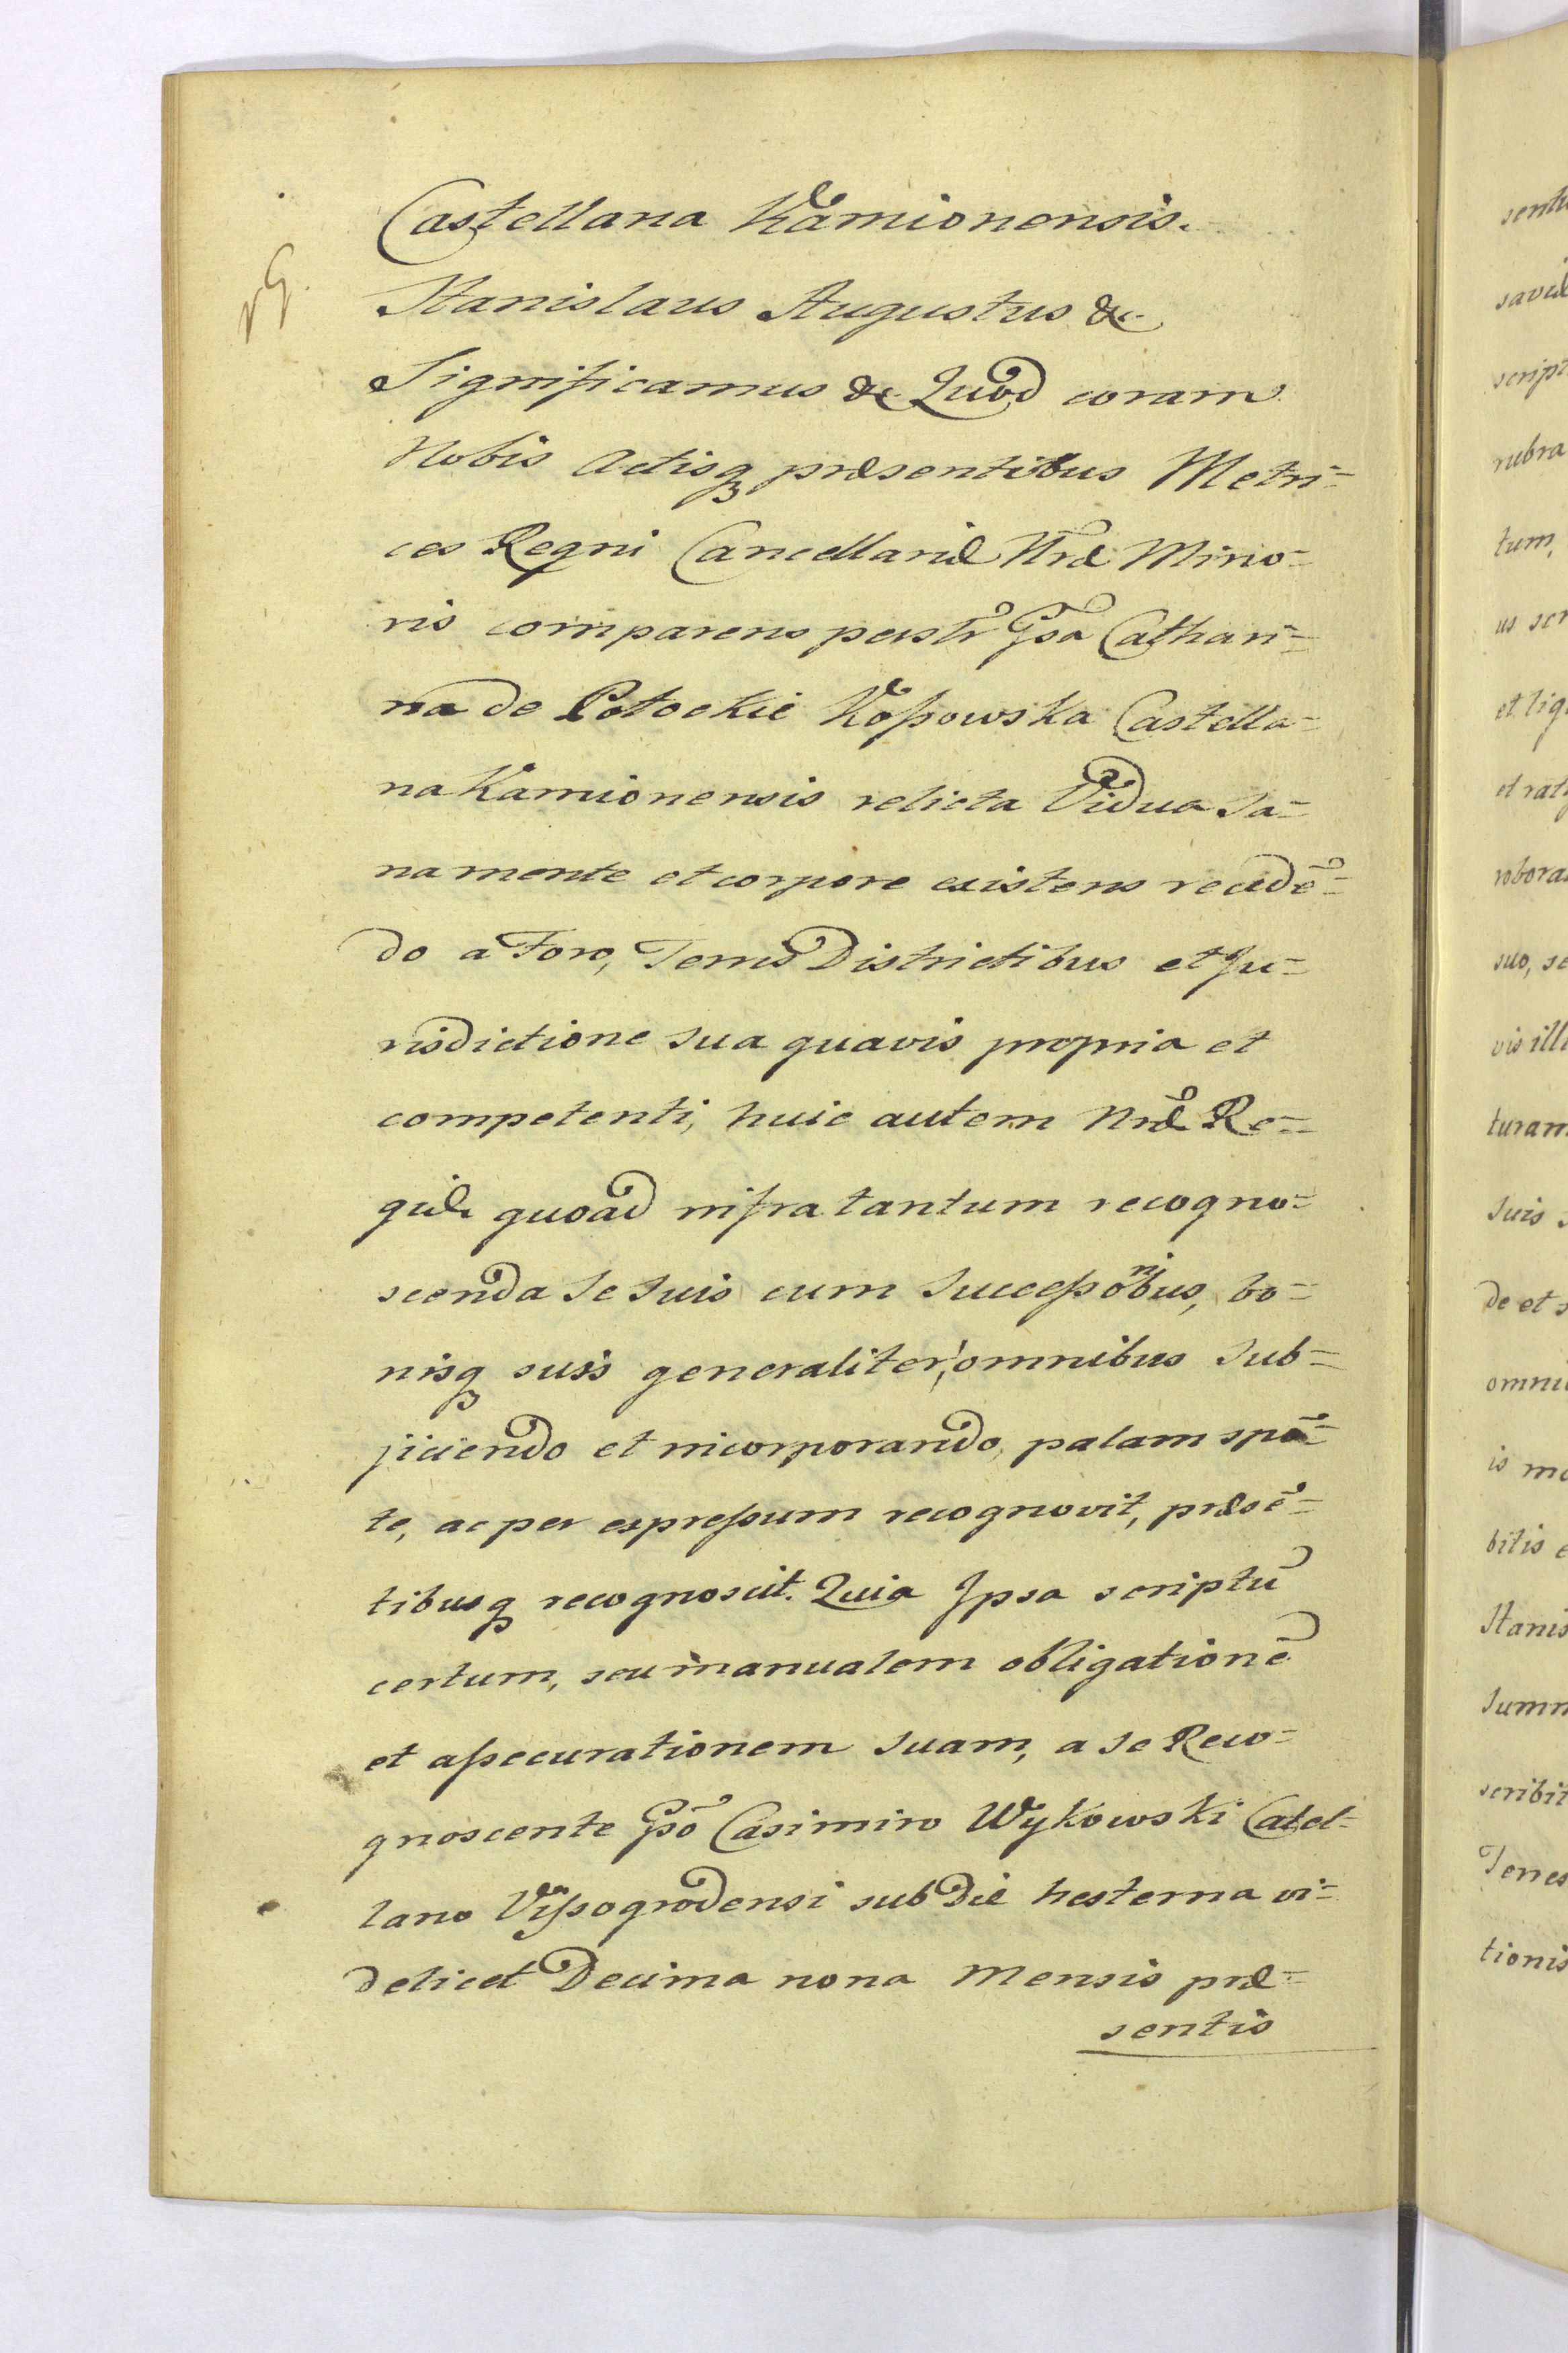 Castellana Kamionensis.
Stanislaus Augustus &c
Significamus &c Quod coram
Nobis Actisq præsentibus Metri=
ces Regni Cancellariæ Nræ Mino=
ris comparens persth Gsa Cathari=
na de Potockie Kossowska Castella=
na Kamionensis relicta Vidua Sa=
na mente et corpore existens recedē=
do a Foro, Terris Districtibus et Ju=
risdictione sua quavis propria et
competenti, huic autem Nræ Re=
giæ quoad infra tantum recogno=
scenda Se Suis cum Successōnibus, bo=
nisq suis generaliter, omnibus Sub=
jiciendo et incorporando, palam spō=
te, ac per expressum recognovit, præsē=
tibusq recognoscit. Quia Ipsa scriptū
certum, seu manualem obligationē
et assecurationem Suam, a Se Reco=
gnoscente Gso Casimiro Wykowski Catel=
lano Vissogrodensi sub Die hesterna vi=
delicet Decima nona Mensis præ=
sentis
sentis
script
rubra
tum,
us scr
et lig
et rat
robora
suo, se
vis ill
turam
Suis
de et s
omni
is ma
bitis e
Stanis
Summ
scribit
tionis